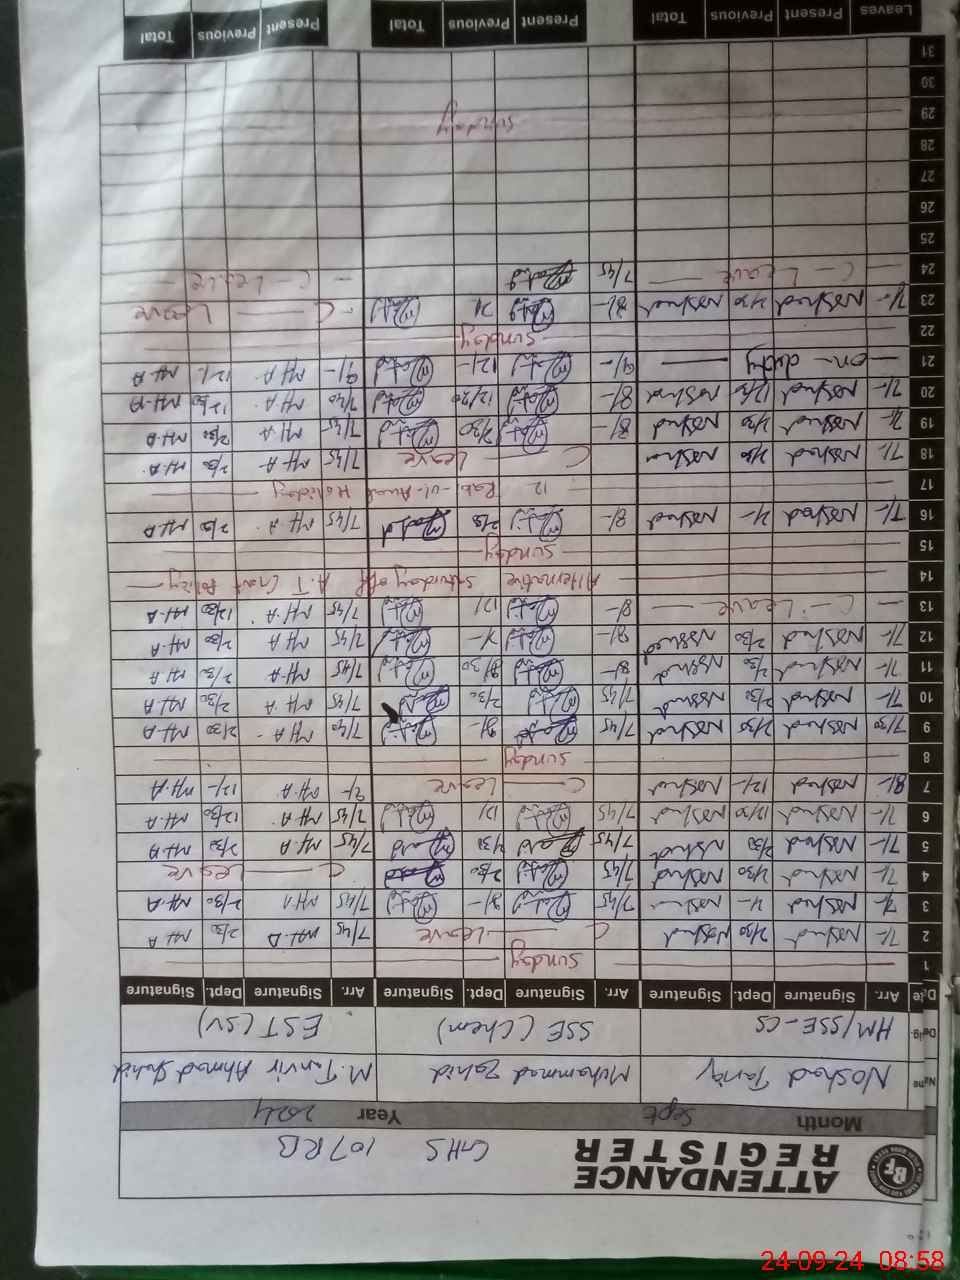 ATTENDANCE
REGISTER
GHS 107 RB
Month Sept Year 2024
Name Noshad Tariq Muhammad Zahid M. Tanvir Ahmad Shahid
Desig. HM/SSE-CS SSE (Chem) EST (SV)
Date Arr. Signature Dept. Signature Arr. Signature Dept. Signature Arr. Signature Dept. Signature
1 Sunday
2 7/- Noshad 2/30 Noshad C Leave 7/45 M.A 2/30 M.A
3 7/- Noshad 7/45 8/- 7/45 M.A 2/30 M.A
4 7/- Noshad 2/30 Noshad 7/45 2/30 C Leave
5 7/- Noshad 2/30 Noshad 7/45 7/45 M.A 2/30 M.A
6 7/- Noshad 12/30 Noshad 7/45 12/ 7/45 M.A 12/30 M.A
7 8/- Noshad 12/- Noshad C Leave M.A 12/- M.A
8 Sunday
9 7/30 Noshad 2/30 Noshad 7/45 7/40 M.A 2/30 M.A
10 7/- Noshad 2/30 Noshad 7/45 2/30 7/45 M.A 2/30 M.A
11 7/- Noshad 2/30 Noshad 8/- 7/45 M.A 2/30 M.A
12 7/- Noshad 2/30 Noshad 8/- 7/45 M.A 2/30 M.A
13 C - Leave 8/- 12/ 7/45 M.A 12/30 M.A
14 Alternative Saturday off A.T Govt Policy
15 Sunday
16 7/- Noshad Noshad 8/- 2/30 7/45 M.A 2/30 M.A
17 12 Rab-ul-Awal Holiday
18 7/- Noshad 2/30 Noshad C Leave 7/45 M.A 2/30 M.A
19 7/- Noshad 2/30 Noshad 8/- 2/30 7/45 M.A 2/30 M.A
20 7/- Noshad 12/30 Noshad 8/- 12/30 7/40 M.A 12/30 M.A
21 on - duty 9/- 12/- 9/- M.A 12/- M.A
22 Sunday
23 7/- Noshad 2/30 Noshad 8/- C Leave
24 C - Leave 7/45 C - Leave
25
26
27
28
29 Sunday
30
31
Leaves Present Previous Total Present Previous Total Present Previous Total
24-09-24 08:58